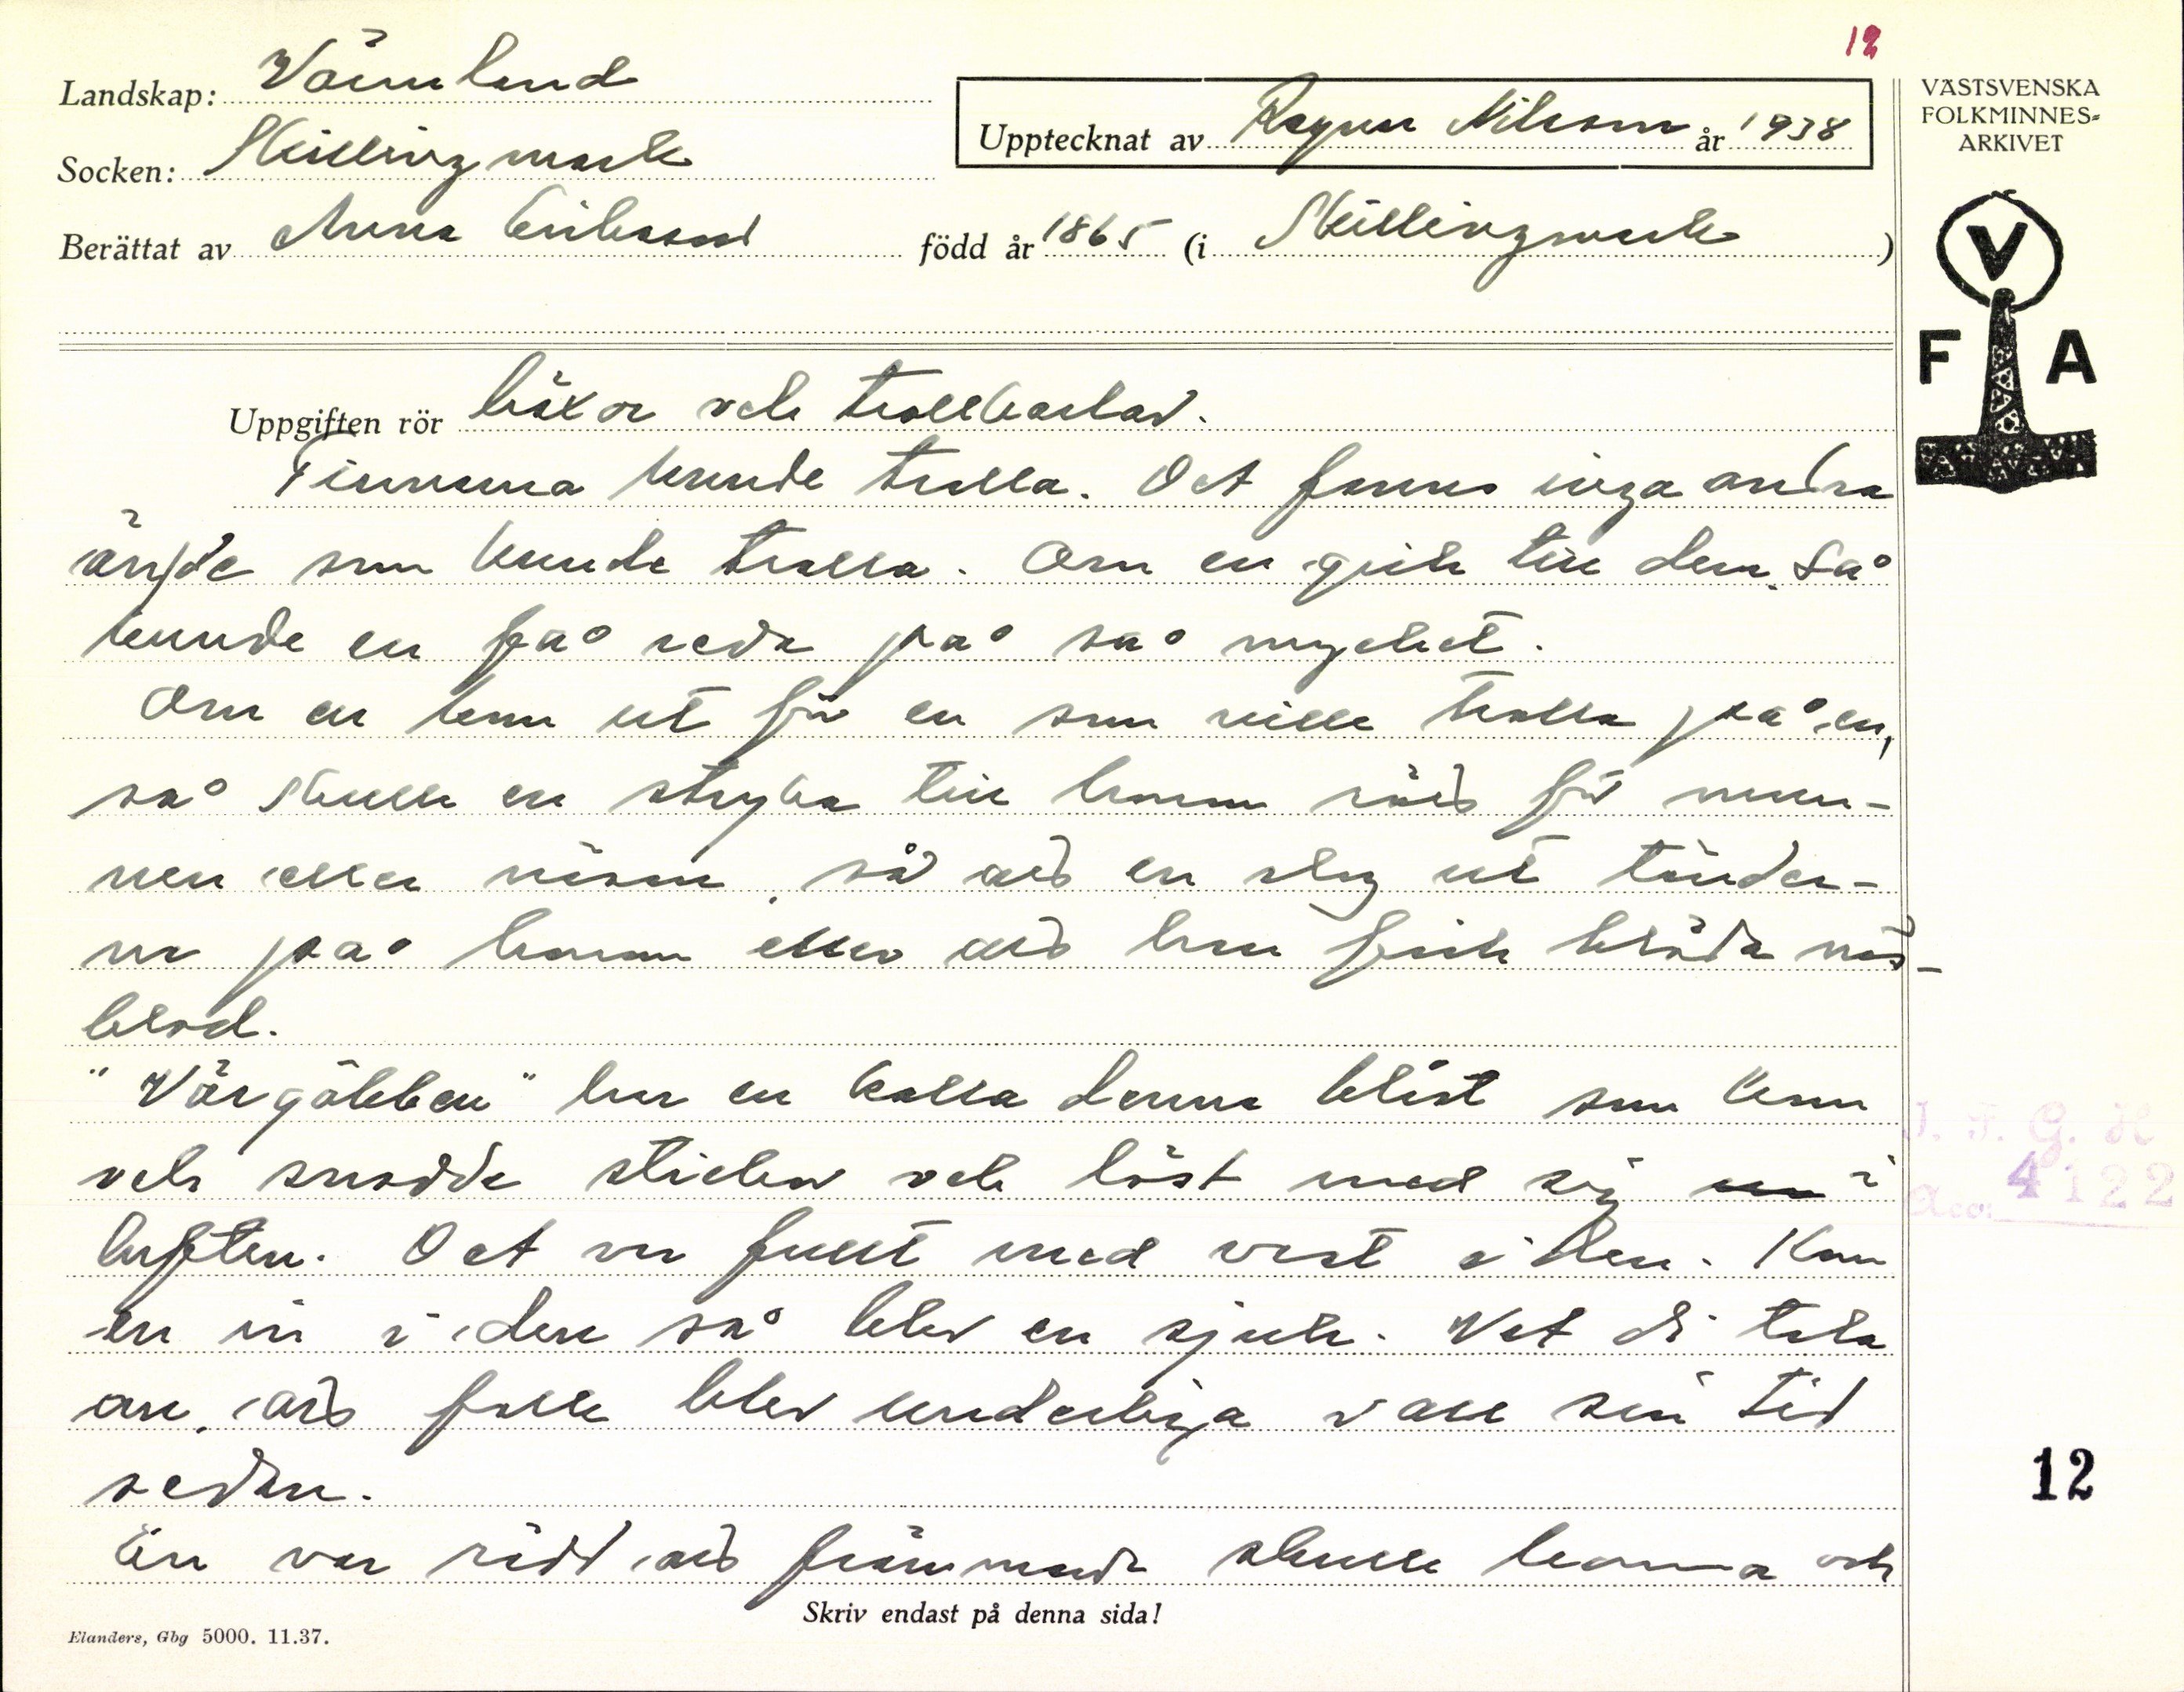 12
Landskap: Värmland
Socken: Skillingmark
Upptecknat av Ragnar Nilsson år 1938
Berättat av Anna Eriksson född år 1865 (i Skillingmark)
VÄSTSVENSKA
FOLKMINNES=
ARKIVET
V
F A
Uppgiften rör häxor och trollkarlar.
Finnarna kunde trolla. Det fanns inga andra
som kunde trolla. Om en gick till dem, så
kunde en få reda på så mycket.
Om en kom ut för en som ville trolla på en,
så skulle en stryka till honom tvärs för mun-
nen eller näsan, så att en slog ut tänder-
na på honom eller att han fick blöda näs-
blod.
"Värgöbben" har en kalla denna blåst som kom
och snodde stickor och löst med sig i
luften. Det var fullt med i den. Kom
en in i den så blev en sjuk. Vet di tala
om, att folk blev underliga all sin tid
sedan.
En var rädd att främmande skulle komma och
J. F. G. H
Acc. 4122
12
Skriv endast på denna sida!
Elanders, Gbg 5000. 11.37.